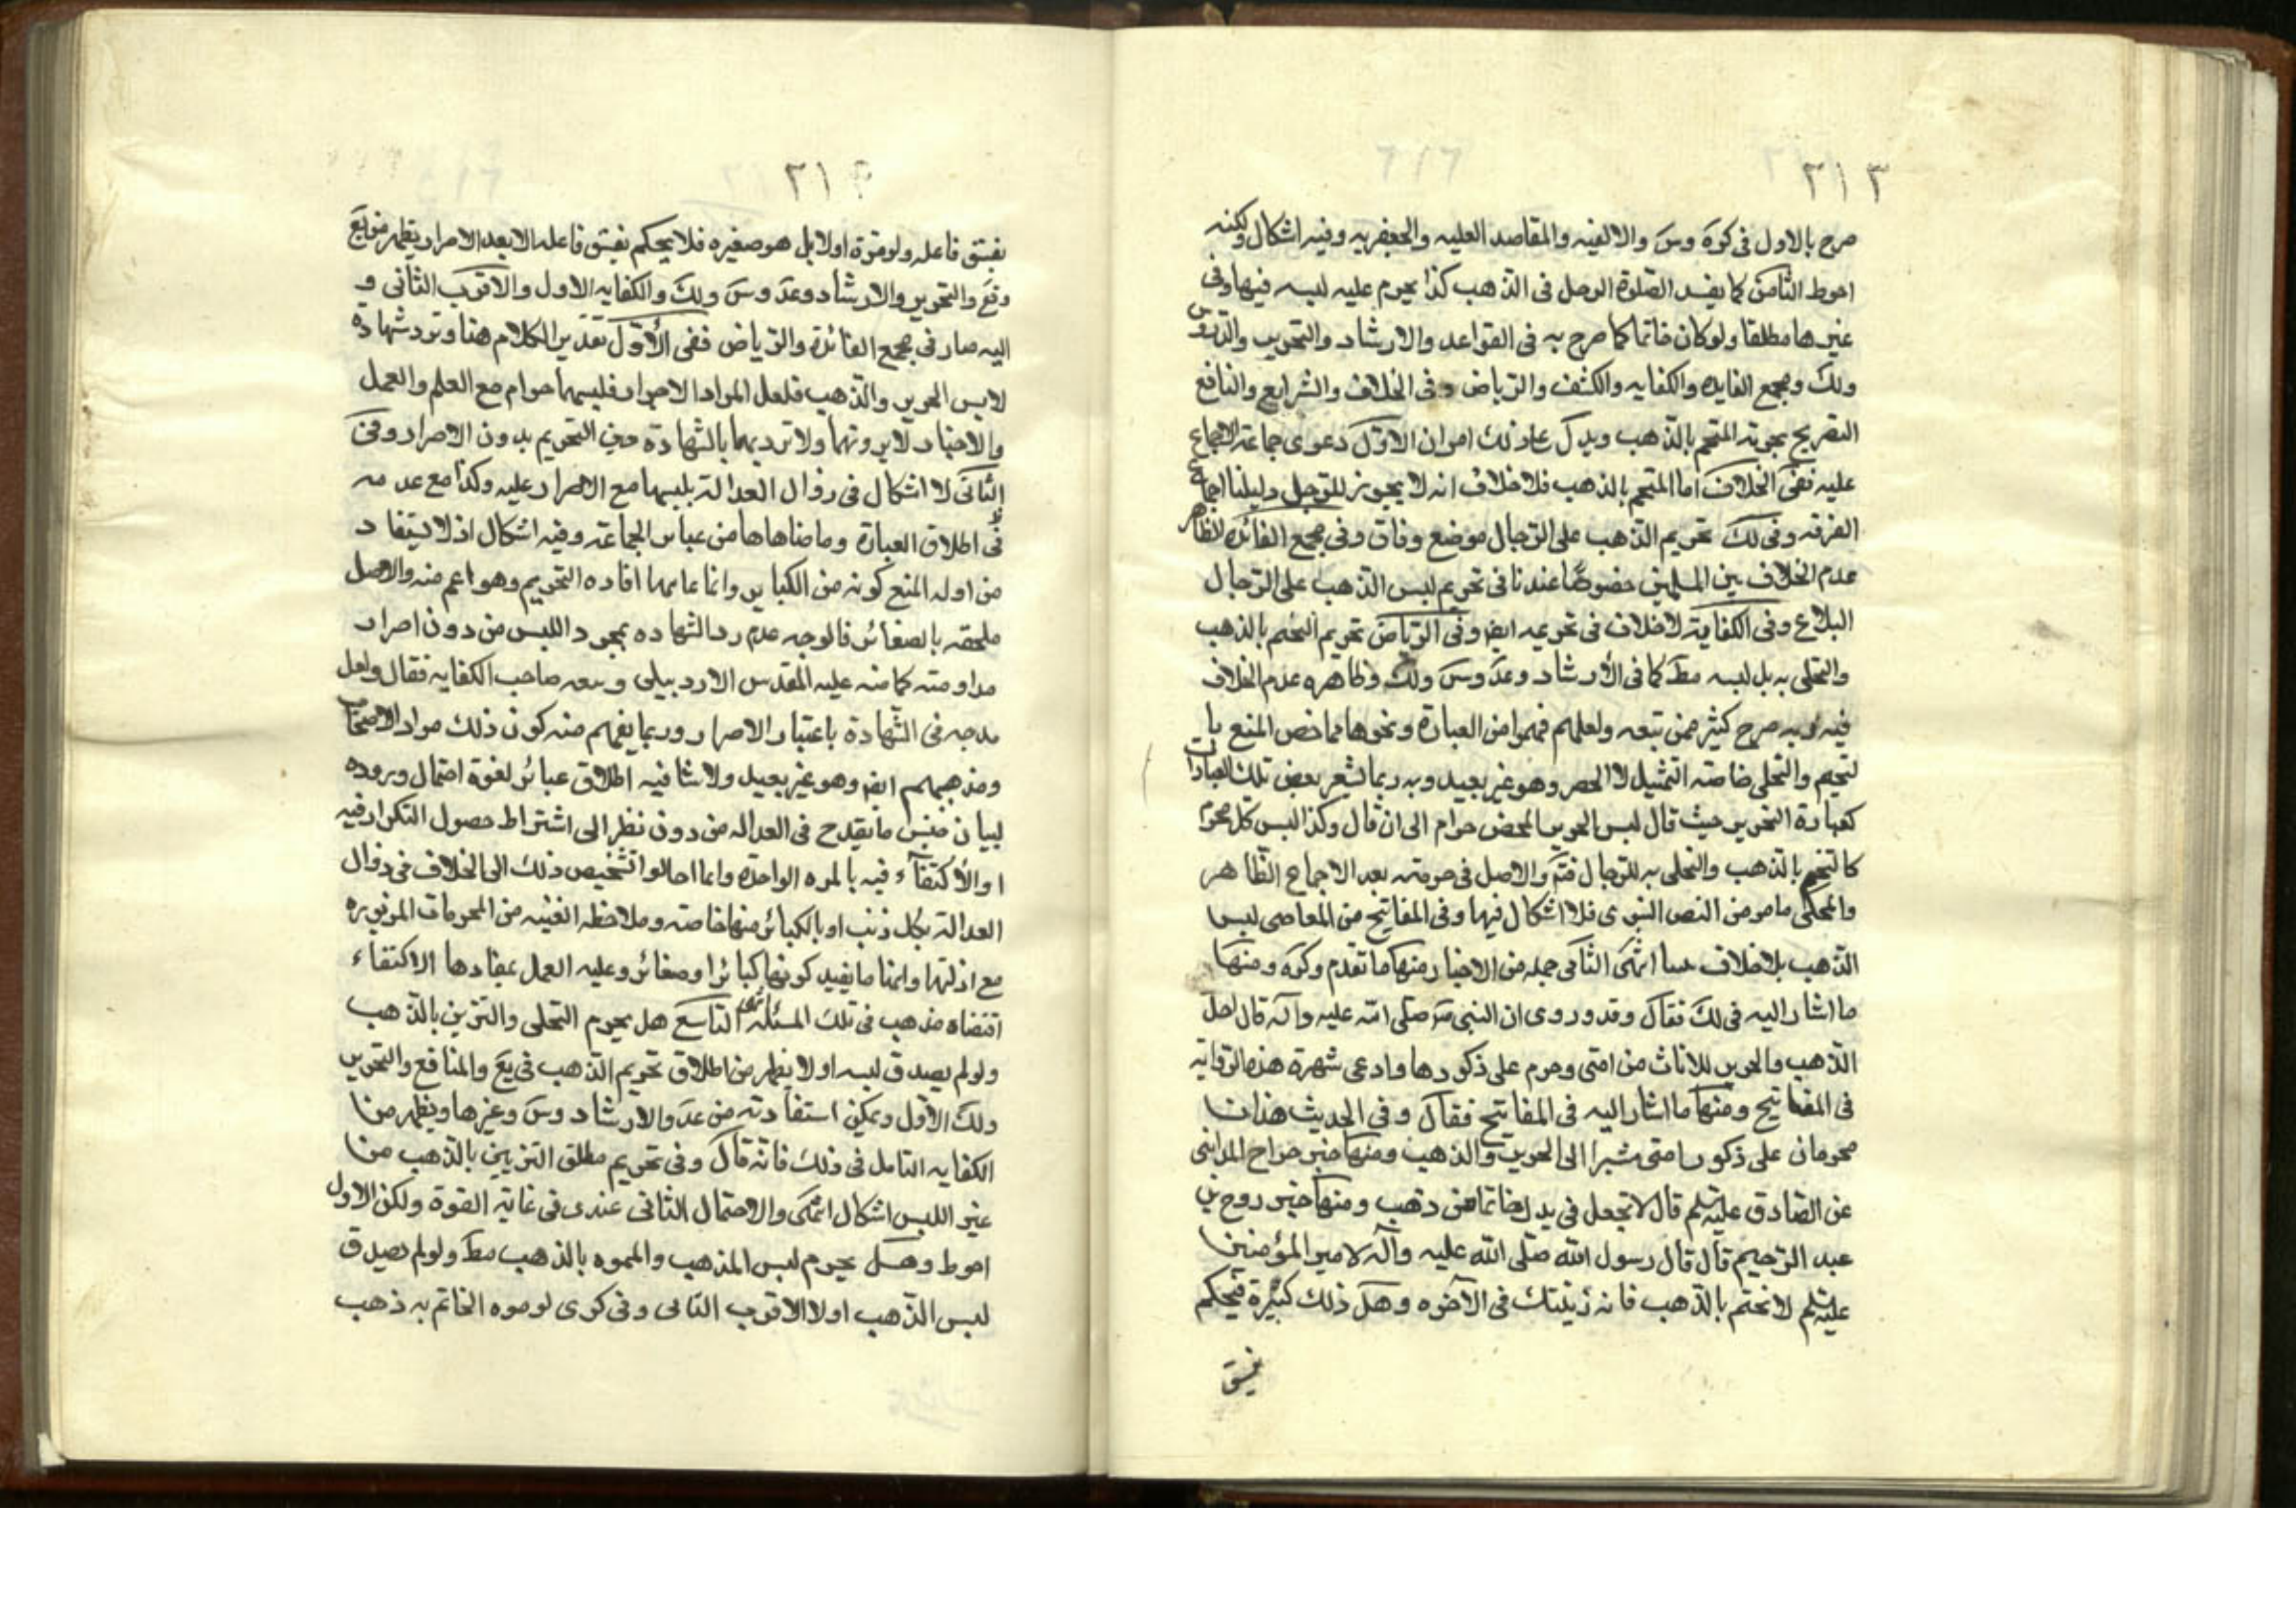 ٣١٣
صرح بالاول فى كرة وس والالفيه والمقاصد العليه والجعفريه وفيه اشكال ولكنه
احوط الثامن كما يفسد الصلوة الرجل فى الذهب كذا يحرم عليه لبسه فيها وفى
غيرها مطلقا ولو كان خاتما كما صرح به فى القواعد والارشاد والتحرير والدروس
ولك ومجمع الفايده والكفايه والكشف والرياض وفى الخلاف والشرايع والنافع
التصريح بحرمة التختم بالذهب ويدل على ذلك امور ان الاول دعوى جماعة الاجماع
عليه ففى الخلاف اما التختم بالذهب فلا خلاف انه لا يجوز للرجل دليلنا اجماع
الفرقه وفى لك تحريم الذهب على الرجال موضع وفاق وفى مجمع الفائده الظاهر
عدم الخلاف بين المسلمين خصوصًا عندنا فى تحريم لبس الذهب على الرجال
البلاغ وفى الكفاية لا خلاف فى تحريمه ايضا وفى الرياض تحريم التختم بالذهب
والتحلى به بل لبسه مط كما فى الارشاد وعد وس ولك وظاهره عدم الخلاف
فيه وبه صرح كثير ممن تبعه ولعلهم فهموا من العبارة ونحوها مما خص المنع با
لتختم والتحلى خاصه التمثيل لا الحصر وهو غير بعيد وبه ربما تشعر بعض تلك العبارات
كعبارة التحرير حيث قال لبس الحرير المحض حرام الى ان قال وكذا لبس كل محرم
كالتختم بالذهب والتحلى به للرجال فتم والاصل فى حرمته بعد الاجماع الظاهر
والمحكى ما مر من النص النبوى فلا اشكال فيها وفى المفاتيح من المعاصى لبس
الذهب بلا خلاف انتهى الثانى جمله من الاخبار منها ما تقدم وكره ومنها
ما اشار اليه فى لك فقال وقد وروى ان النبى ص صلى الله عليه وآله قال احل
الذهب والحرير للاناث من امتى وحرم على ذكورها وادعى شهرة هذه الرواية
فى المفاتيح ومنها ما اشار اليه فى المفاتيح فقال وفى الحديث هذان
محرمان على ذكور امتى مشيرا الى الحرير والذهب ومنها خبر جراح المدائنى
عن الصادق عليه السلم قال لا تجعل فى يدك خاتما من ذهب ومنها خبر روح بن
عبد الرحيم قال قال رسول الله صلى الله عليه وآله لامير المؤمنين
عليه السلم لا تختم بالذهب فانه زينتك فى الآخره وهل ذلك كبيرة فيحكم
بفسق
٣١٤
بفسق فاعله ولو مرة اولا بل هو صغيره فلا يحكم بفسق فاعله الا بعد الاصرار يظهر من يع
وفع والتحرير والارشاد وعد وس ولك والكفايه الاول والاقرب الثانى و
اليه صار فى مجمع الفائدة والرياض ففى الاول بعد نقل الكلام هنا وترد شهادة
لابس الحرير والذهب فلعل المراد الاصرار فلبسهما حرام مع العلم والعمل
والاختيار لا بدونهما ولا ترد بهما بالشهادة حين التحريم بدون الاصرار وفى
الثانى لا اشكال فى زوال العدالة بلبسهما مع الاصرار عليه وكذا مع عدمه
فى اطلاق العبارة وما ضاهاها من عبائر الجماعة وفيه اشكال اذ لا يستفاد
من ادلة المنع كونه من الكباير وانما غايتها افاده التحريم وهو اعم منه والاصل
ملحقه بالصغائر فالوجه عدم رد الشهاده بمجرد اللبس من دون اصرار
مداومته كما نبه عليه المقدس الاردبيلى وتبعه صاحب الكفايه فقال ولعل
مدحه فى الشهادة باعتبار الاصرار وربما يفهم منه كون ذلك مراد الاصحاب
ومذهبهم ايضا وهو غير بعيد ولا ينافيه اطلاق عبائر لقوة احتمال وروده
لبيان جنس ما يقدح فى العداله من دون نظر الى اشتراط حصول التكرار فيه
او الاكتفاء فيه بالمره الواحده وانما احالوا تشخيص ذلك الى الخلاف فى زوال
العدالة بكل ذنب او بالكبائر منها خاصه وملاحظه الغنيه من المحرمات المزبوره
مع ادلتها وانها ما يفيد كونها كبائر او صغائر وعليه العمل بمفادها الاكتفاء
اقتضاه مذهب فى تلك المسئلة انتهى التاسع هل يحرم التحلى والتزين بالذهب
ولو لم يصدق لبسه اولا يظهر من اطلاق تحريم الذهب فى يع والنافع والتحرير
ولك الاول ويمكن استفادته من عد والارشاد وس وغيرها ويظهر من
الكفايه التامل فى ذلك فانه قال وفى تحريم مطلق التزيين بالذهب من
غير اللبس اشكال انتهى والاحتمال الثانى عندى فى غاية القوة ولكن الاول
احوط وهل يحرم لبس المذهب والمموه بالذهب مط ولو لم يصدق
لبس الذهب اولا الاقرب الثانى وفى كرى لو موه الخاتم به ذهب